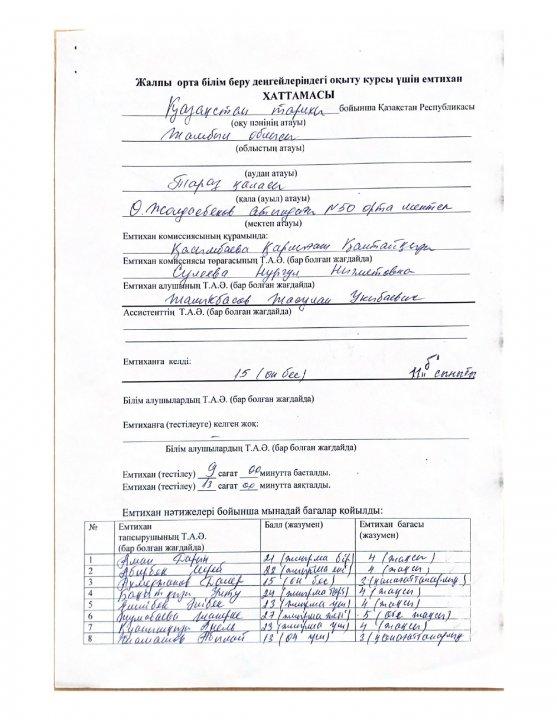 Жалпы орта білім беру деңгейлеріндегі оқыту курсы үшін емтихан
ХАТТАМАСЫ
Қазақстан тарихы бойынша Қазақстан Республикасы
(оқу пәнінің атауы)
Жамбыл облысы
(облыстың атауы)
(аудан атауы)
Тараз қаласы
(қала (ауыл) атауы)
атындағы №50 орта мектеп
(мектеп атауы)
Емтихан комиссиясының құрамында:
Емтихан комиссиясы төрағасының Т.А.Ә. (бар болған жағдайда)
Сулеева Нургул
Емтихан алушының Т.А.Ә. (бар болған жағдайда)
Ассистенттің Т.А.Ә. (бар болған жағдайда)
Емтиханға келді:
15 (он бес) 11 "б" сыныбы
Білім алушылардың Т.А.Ә. (бар болған жағдайда)
Емтиханға (тестілеуге) келген жоқ:
–
Білім алушылардың Т.А.Ә. (бар болған жағдайда)
Емтихан (тестілеу) 9 сағат 00 минутта басталды.
Емтихан (тестілеу) 13 сағат 00 минутта аяқталды.
Емтихан нәтижелері бойынша мынадай бағалар қойылды:
№ Емтихан тапсырушының Т.А.Ә. (бар болған жағдайда) Балл (жазумен) Емтихан бағасы (жазумен)
1 Аман 21 (жиырма бір) 4 (жақсы)
2 22 (жиырма екі) 4 (жақсы)
3 15 (он бес) 3 (қанағаттанарлық)
4 24 (жиырма төрт) 4 (жақсы)
5 23 (жиырма үш) 4 (жақсы)
6 27 (жиырма жеті) 5 (өте жақсы)
7 23 (жиырма үш) 4 (жақсы)
8 13 (он үш) 3 (қанағаттанарлық)